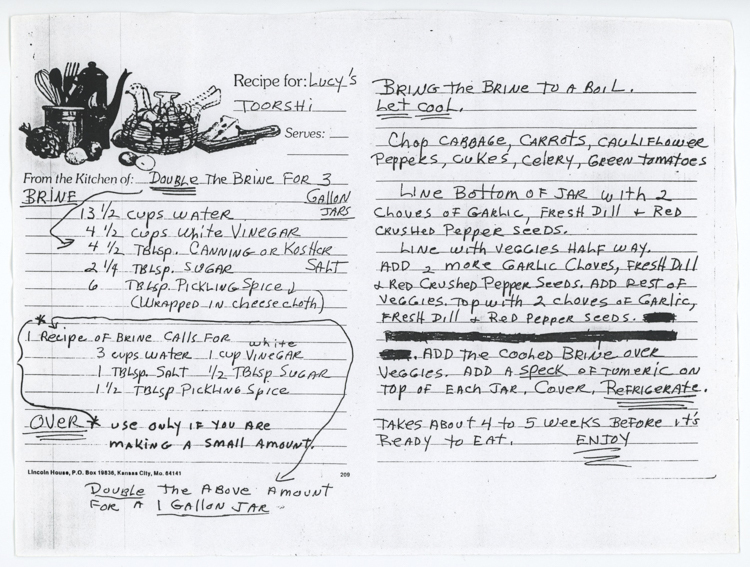 Recipe for: Lucy's
TOORSHI
Serves:
From the Kitchen of: DOUBLE THE BRINE FOR 3
GALLON
JARS
BRINE
13 1/2 cups WATER
4 1/2 cups White VINEGAR
4 1/2 TBLSP. CANNING OR KOSHER
SALT
2 1/4 TBLSP. SUGAR
6 TBLSP. PICKLING SPICE
(WRAPPED IN cheese cloth)
*
1 Recipe OF BRINE CALLS FOR white
3 cups WATER 1 cup VINEGAR
1 TBLSP. SALT 1/2 TBLSP SUGAR
1 1/2 TBLSP PICKLING SPICE
OVER * USE ONLY IF YOU ARE
MAKING A SMALL AMOUNT.
Lincoln House, P.O. Box 19836, Kansas City, Mo. 64141
209
DOUBLE THE ABOVE AMOUNT
FOR A 1 GALLON JAR
BRING the BRINE TO A BOIL.
Let COOL.
Chop CABBAGE, CARROTS, CAULIFLOWER
PEPPERS, CUKES, CELERY, GREEN TOMATOES
LINE BOTTOM OF JAR WITH 2
CLOVES OF GARLIC, FRESH DILL & RED
CRUSHED PEPPER SEEDS.
LINE WITH VEGGIES HALF WAY.
ADD 2 MORE GARLIC CLOVES, FRESH DILL
& RED CRUSHED PEPPER SEEDS. ADD REST OF
VEGGIES. TOP WITH 2 CLOVES OF GARLIC,
FRESH DILL & RED PEPPER SEEDS.
. ADD THE COOLED BRINE OVER
VEGGIES. ADD A SPECK OF TUMERIC ON
TOP OF EACH JAR. COVER. REFRIGERATE.
TAKES ABOUT 4 TO 5 WEEKS BEFORE IT'S
READY TO EAT. ENJOY